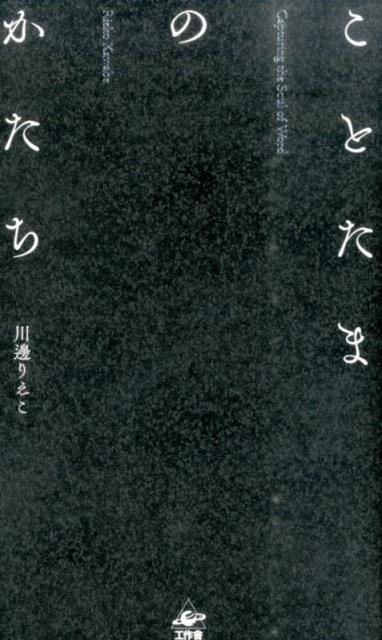 ことたま
Capturing the Soul of Word
の
Rieko Kawabe
かたち
川邊りえこ
工作舎